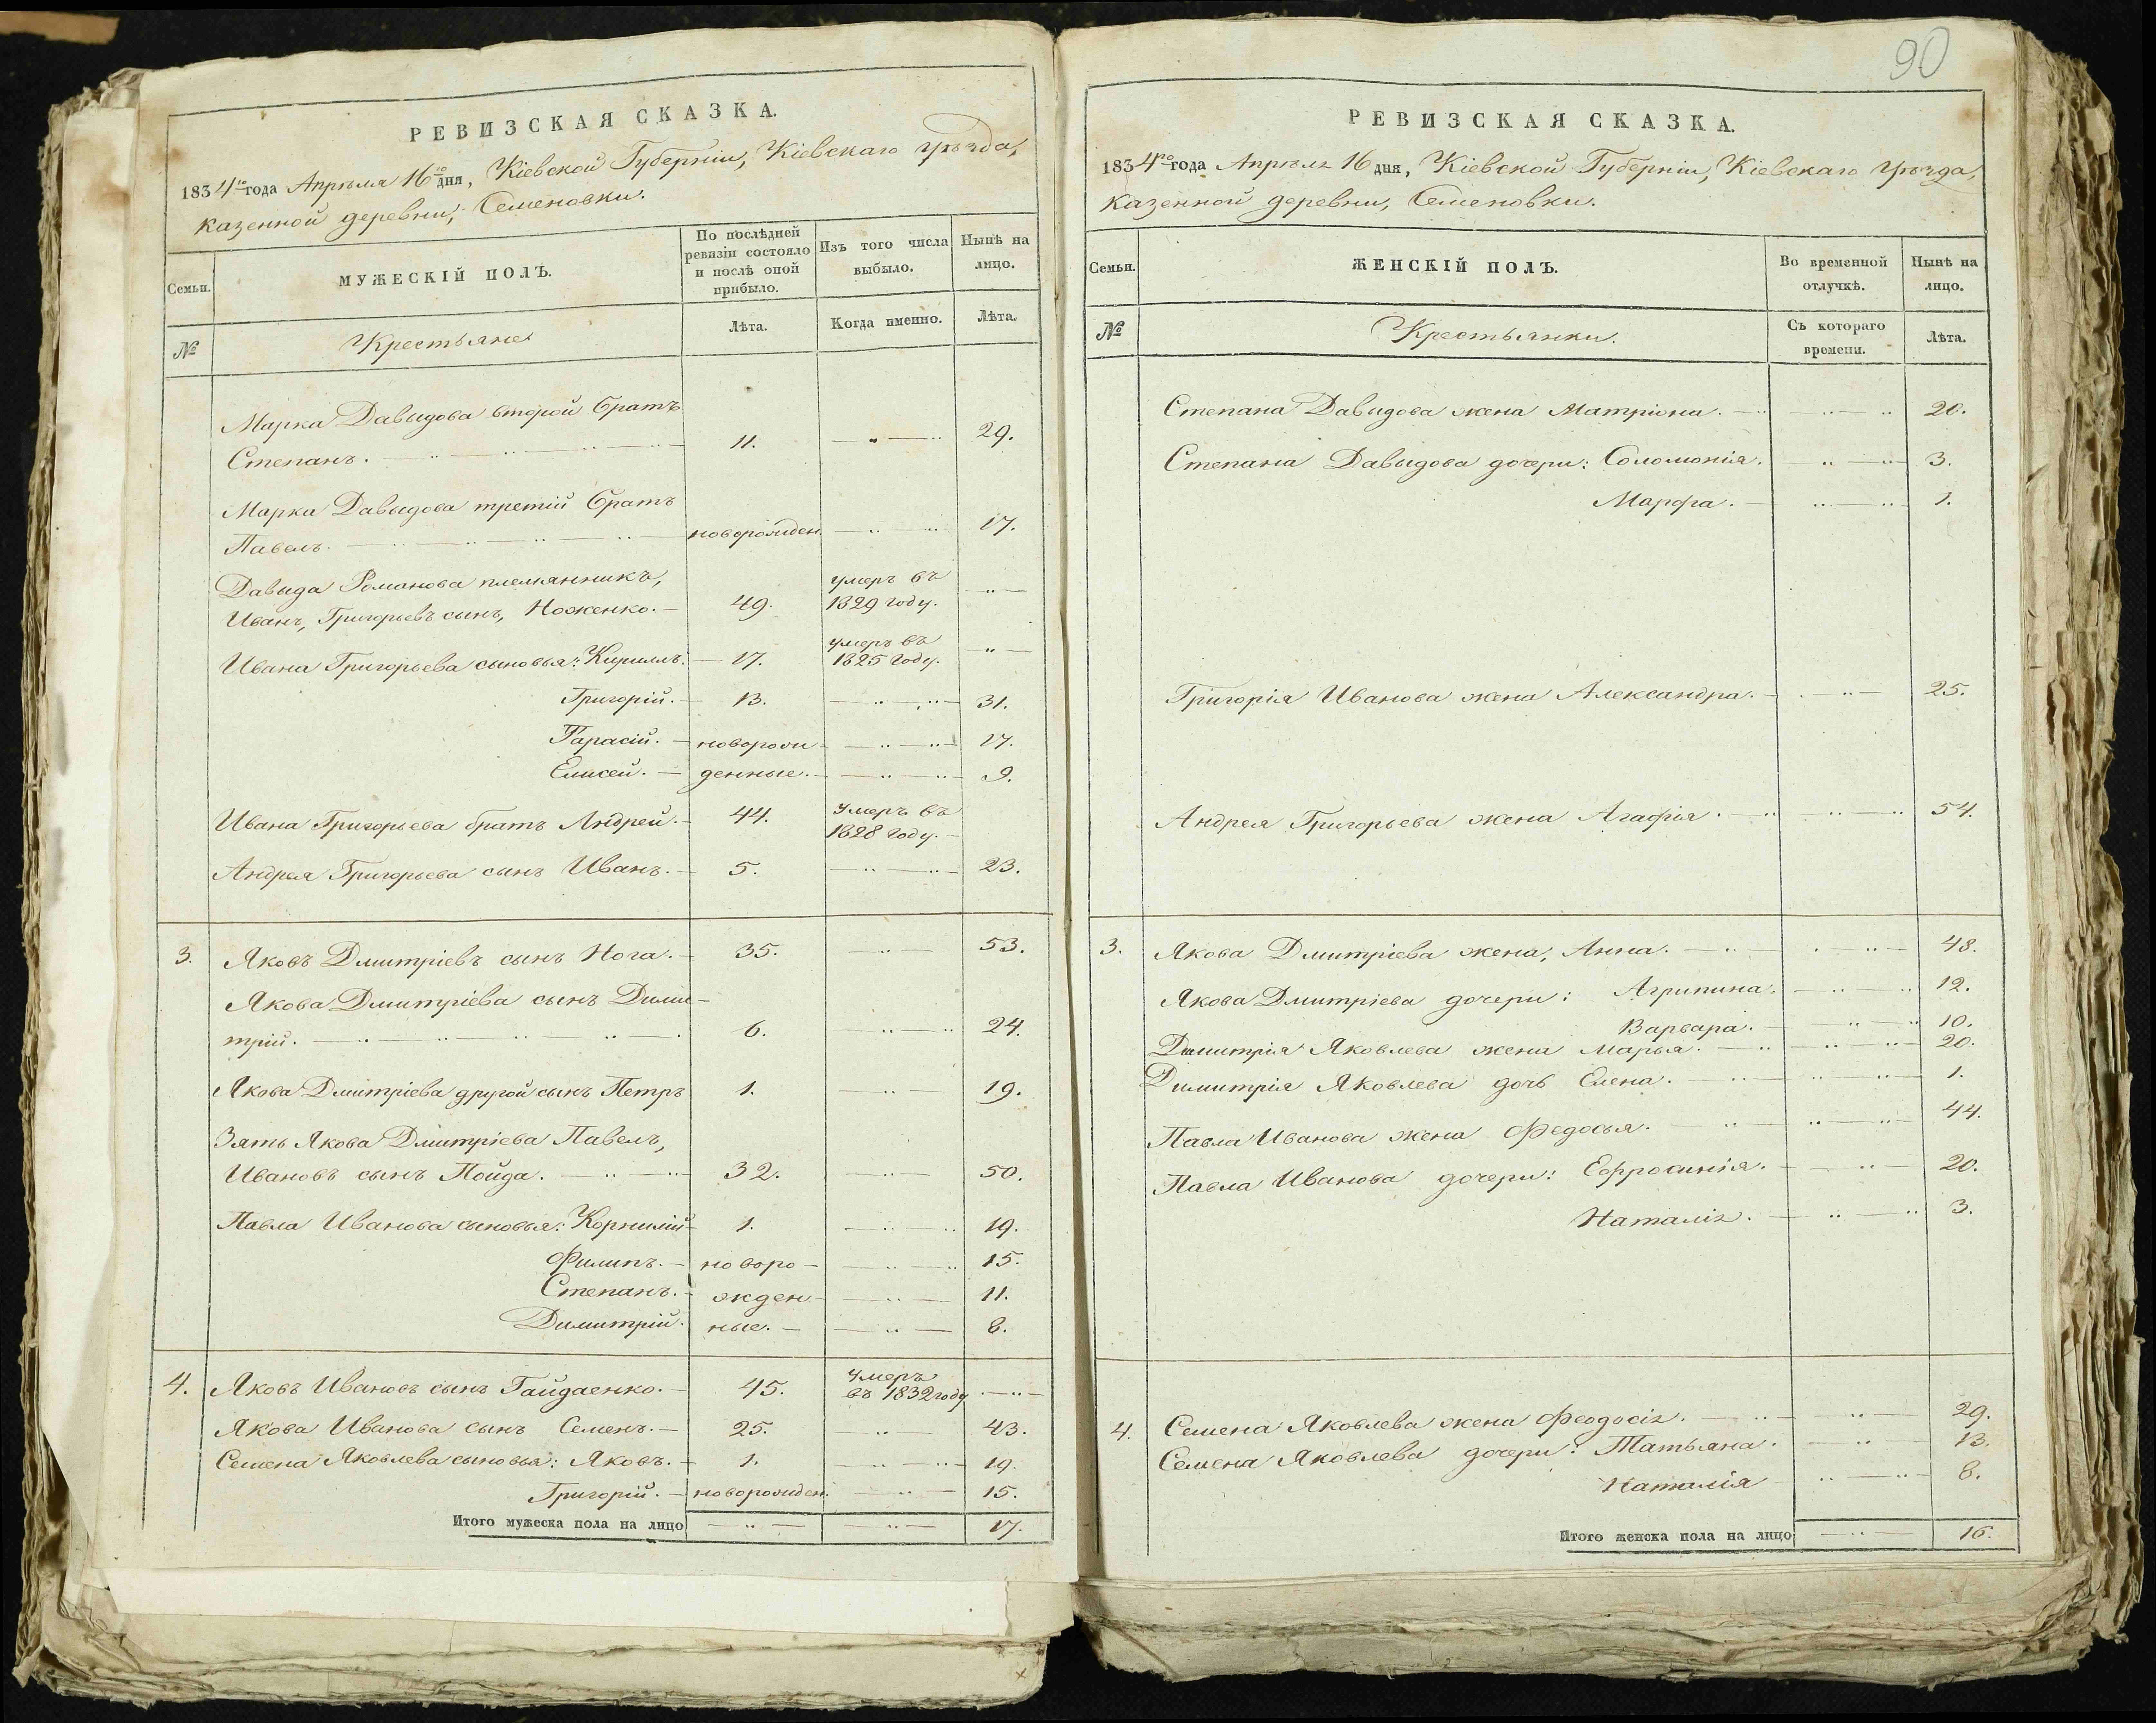 РЕВИЗСКАЯ СКАЗКА.
1834го года Апрѣля 16го дня, Кіевской Губерніи, Кіевскаго Уѣзда,
казенной деревни, Семеновки.
Семьи.
МУЖЕСКІЙ ПОЛЪ.
По послѣдней
ревизіи состояло
и послѣ оной
прибыло.
Изъ того числа
выбыло.
Нынѣ на
лицо.
№
Крестьяне
Лѣта.
Когда именно.
Лѣта.
Марка Давыдова второй братъ
Степанъ. 11. 29.
Марка Давыдова третій братъ
Павелъ. новорожден. 17.
Давыда Романова племянникъ, умеръ въ
Иванъ, Григорьевъ сынъ, Ноженко. 49. 1829 году.
умеръ въ
Ивана Григорьева сыновья: Кириллъ. 17. 1825 году.
Григорій. 13. 31.
Тарасій. новорож- 17.
Елисей. денные. 9.
Ивана Григорьева братъ Андрей. 44. умеръ въ
1828 году.
Андрея Григорьева сынъ Иванъ. 5. 23.
3. Яковъ Дмитріевъ сынъ Нога. 35. 53.
Якова Дмитріева сынъ Дими-
трій. 6. 24.
Якова Дмитріева другой сынъ Петръ 1. 19.
Зять Якова Дмитріева Павелъ,
Ивановъ сынъ Пойда. 32. 50.
Павла Иванова сыновья: Корнилій 1. 19.
Филипъ. новоро- 15.
Степанъ. жден- 11.
Димитрій. ные. 8.
4. Яковъ Ивановъ сынъ Гайдаенко. 45. умеръ
въ 1832 году
Якова Иванова сынъ Семенъ. 25. 43.
Семена Яковлева сыновья: Яковъ. 1. 19.
Григорій. новорожден. 15.
Итого мужеска пола на лицо 17.
90
РЕВИЗСКАЯ СКАЗКА.
1834го года Апрѣля 16 дня, Кіевской Губерніи, Кіевскаго Уѣзда,
казенной деревни, Семеновки.
Семьи.
ЖЕНСКІЙ ПОЛЪ.
Во временной
отлучкѣ.
Нынѣ на
лицо.
№
Крестьянки.
Съ котораго
времени.
Лѣта.
Степана Давыдова жена Матріона. 20.
Степана Давыдова дочери: Соломонія. 3.
Марфа. 1.
Григорія Иванова жена Александра. 25.
Андрея Григорьева жена Агафія. 54.
3. Якова Дмитріева жена, Анна. 48.
Якова Дмитріева дочери: Агрипина. 12.
Варвара. 10.
Димитрія Яковлева жена Марья. 20.
Димитрія Яковлева дочь Елена. 1.
Павла Иванова жена Федосья. 44.
Павла Иванова дочери: Ефросинія. 20.
Наталія. 3.
4. Семена Яковлева жена Феодосія. 29.
Семена Яковлева дочери: Татьяна. 13.
Наталія 8.
Итого женска пола на лицо 16.